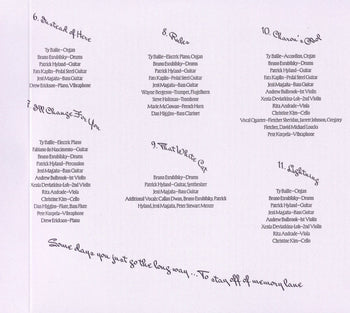 6. Instead of Here
Ty Bailie–Organ
Bruno Esrubilsky–Drums
Patrick Hyland–Guitar
Fats Kaplin–Pedal Steel Guitar
Jeni Magaña–Bass Guitar
Drew Erickson–Piano, Vibraphone
7. I'll Change For You
Ty Bailie–Electric Piano
Fabiano do Nascimento–Guitar
Bruno Esrubilsky–Drums
Patrick Hyland–Percussion
Jeni Magaña–Bass Guitar
Andrew Bulbrook–1st Violin
Xenia Deviatkina-Loh–2nd Violin
Rita Andrade–Viola
Christine Kim–Cello
Dan Higgins–Flute, Bass Flute
Pete Korpela–Vibraphone
Drew Erickson–Piano
8. Rules
Ty Bailie–Electric Piano, Organ
Bruno Esrubilsky–Drums
Patrick Hyland–Guitar
Fats Kaplin–Pedal Steel Guitar
Jeni Magaña–Bass Guitar
Wayne Bergeron–Trumpet, Flugelhorn
Steve Holtman–Trombone
Mark McGowan–French Horn
Dan Higgins–Bass Clarinet
9. That White Cat
Bruno Esrubilsky–Drums
Patrick Hyland–Guitar, Synthesizer
Jeni Magaña–Bass Guitar
Additional Vocals: Callan Dwan, Bruno Esrubilsky, Patrick
Hyland, Jeni Magaña, Peter Stewart Mercer
10. Charon's Obol
Ty Bailie–Accordion, Organ
Bruno Esrubilsky–Drums
Patrick Hyland–Guitar
Fats Kaplin–Pedal Steel Guitar
Jeni Magaña–Bass Guitar
Andrew Bulbrook–1st Violin
Xenia Deviatkina-Loh–2nd Violin
Rita Andrade–Viola
Christine Kim–Cello
Vocal Quartet–Fletcher Sheridan, Jarrett Johnson, Gregory
Fletcher, David Michael Loucks
Pete Korpela–Vibraphone
11. Lightning
Ty Bailie–Organ
Bruno Esrubilsky–Drums
Patrick Hyland–Guitar
Jeni Magaña–Bass Guitar
Andrew Bulbrook–1st Violin
Xenia Deviatkina-Loh–2nd Violin
Rita Andrade–Viola
Christine Kim–Cello
Some days you just go the long way... To stay off of memory lane